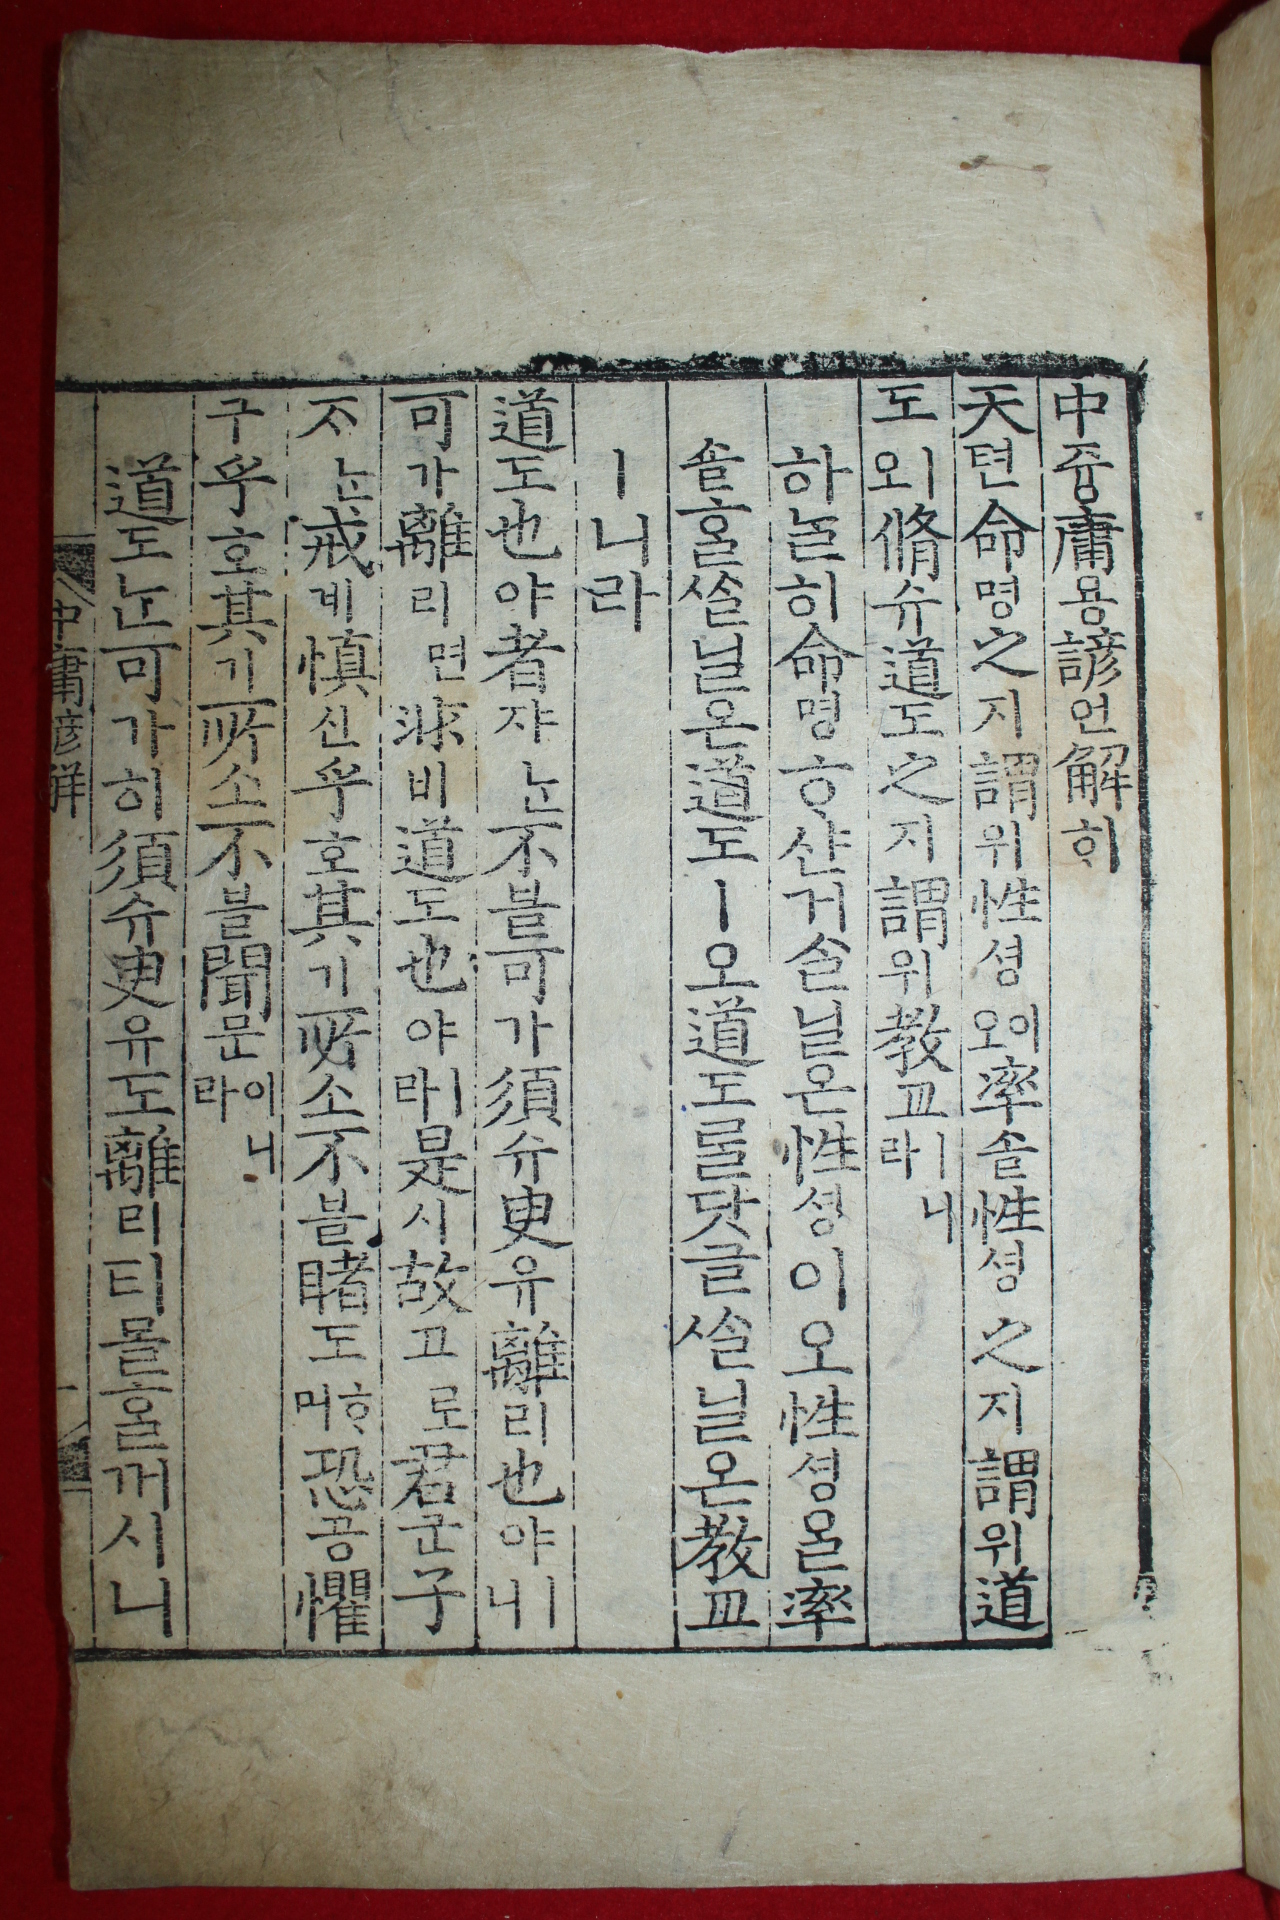 中즁庸용諺언解ᄒᆡ
天텬命명之지謂위性셩이오率솔性셩之지謂위道
도ㅣ오脩슈道도之지謂위教교ㅣ니라
하ᄂᆞᆯ히命명ᄒᆞ샨거ᄉᆞᆯ닐온性셩이오性셩을率
솔홀ᄊᆞᆯ닐온道도ㅣ오道도ᄅᆞᆯ닷글ᄊᆞᆯ닐온教교
ㅣ니라
道도也야者쟈ᄂᆞᆫ不블可가須슈臾유離리也야ㅣ니
可가離리면非비道도也야ㅣ라是시故고로君군子
ᄌᆞᄂᆞᆫ戒계慎신乎호其기所소不블睹도ᄒᆞ며恐공懼
구乎호其기所소不블聞문이니라
道도ᄂᆞᆫ可가히須슈臾유도離리티몯홀꺼시니
中庸諺解 一